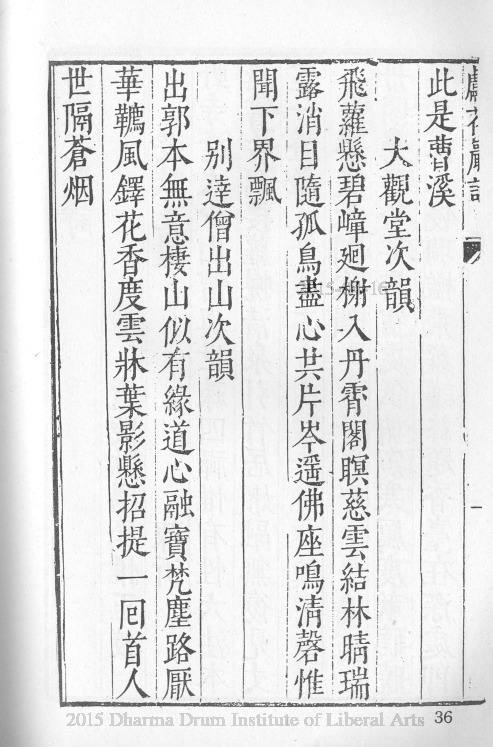 此是曹溪
大觀堂次韻
飛蘿懸碧嶂廻榭入丹霄閣暝慈雲結林晴瑞
露消目隨孤鳥盡心共片岑遥佛座鳴清磬惟
聞下界飄
别達僧出山次韻
出郭本無意棲山似有緣道心融寶梵塵路厭
華韉風鐸花香度雲牀葉影懸招提一囘首人
世隔蒼烟
2015 Dharma Drum Institute of Liberal Arts
36